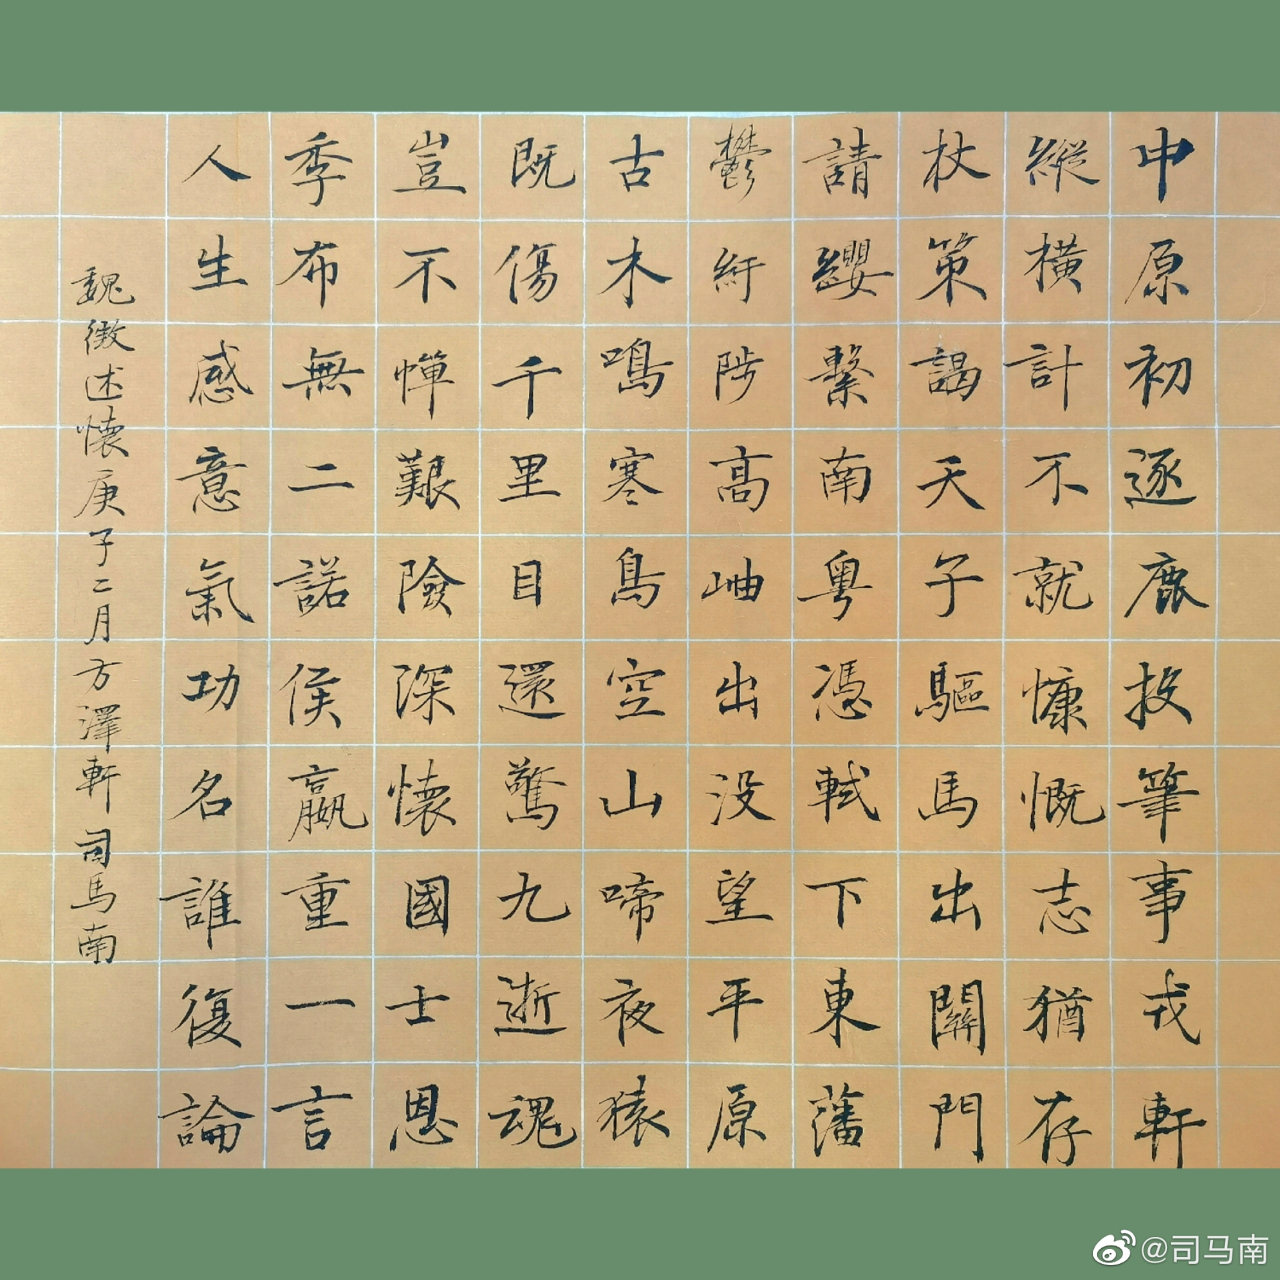 中原初逐鹿投筆事戎軒
縱橫計不就慷慨志猶存
杖策謁天子驅馬出關門
請纓繫南粵憑軾下東藩
鬱紆陟高岫出没望平原
古木鳴寒鳥空山啼夜猿
既傷千里目還驚九逝魂
豈不憚艱險深懷國士恩
季布無二諾侯嬴重一言
人生感意氣功名誰復論
魏徵述懷庚子二月方澤軒司馬南
@司马南